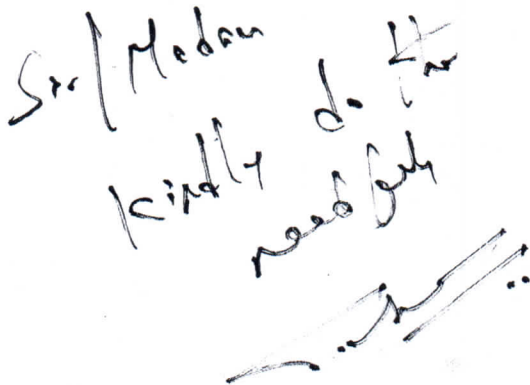 Sir/Madam
Kindly do the
needfuly